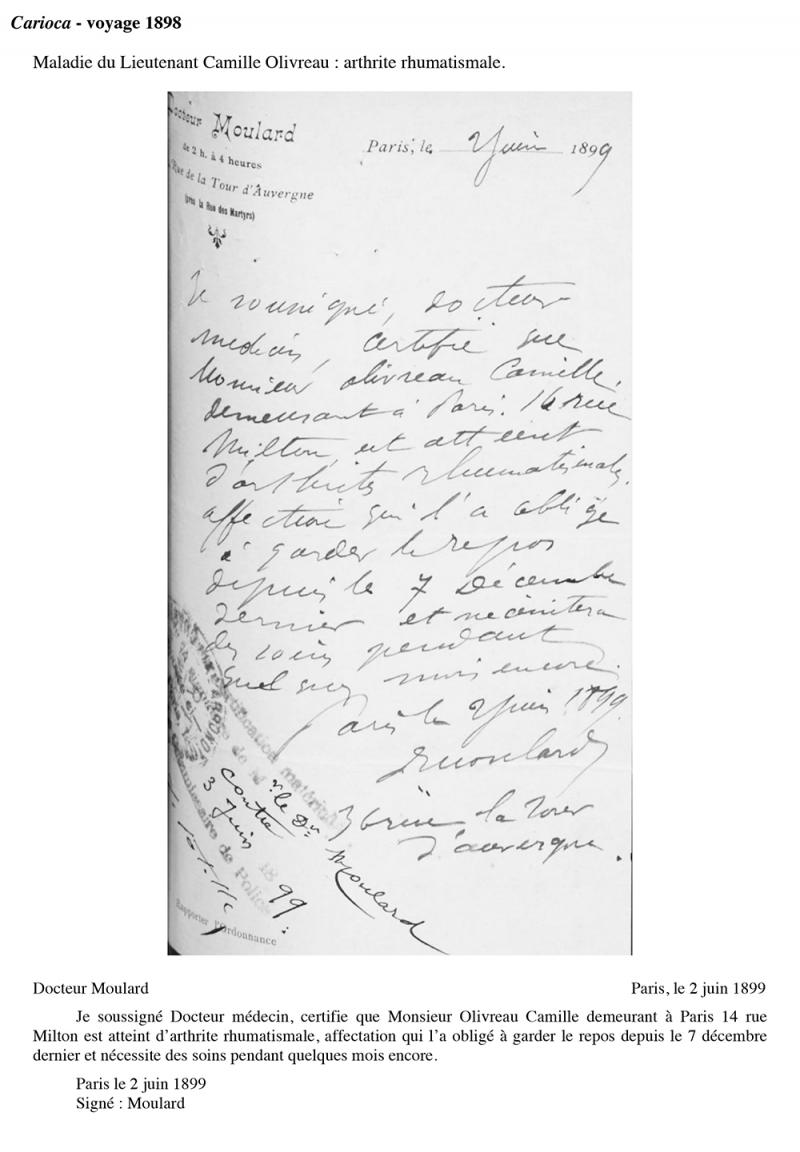 Carioca - voyage 1898
Maladie du Lieutenant Camille Olivreau : arthrite rhumatismale.
Docteur Moulard
de 2 h. à 4 heures
Rue de la Tour d'Auvergne
(près la Rue des Martyrs)
Paris, le 2 juin 1899
Je soussigné, docteur
médecin, certifie que
Monsieur Olivreau Camille,
demeurant à Paris. 14 rue
Milton, est atteint
d'arthrite rhumatismale,
affection qui l'a obligé
à garder le repos
depuis le 7 Décembre
dernier et nécessitera
des soins pendant
quelques mois encore.
Paris le 2 juin 1899
Moulard
rue la Tour
d'auvergne.
matérielle
de M
r le Dr Moulard
contre
3 Juin 1899
Commissaire de Police
Rapporter l'Ordonnance
Docteur Moulard
Paris, le 2 juin 1899
Je soussigné Docteur médecin, certifie que Monsieur Olivreau Camille demeurant à Paris 14 rue
Milton est atteint d'arthrite rhumatismale, affectation qui l'a obligé à garder le repos depuis le 7 décembre
dernier et nécessite des soins pendant quelques mois encore.
Paris le 2 juin 1899
Signé : Moulard